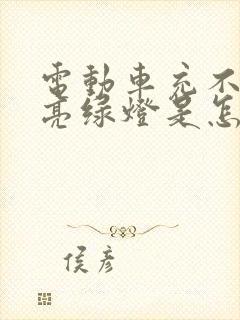 電動車充不
亮綠燈是怎
侯彥